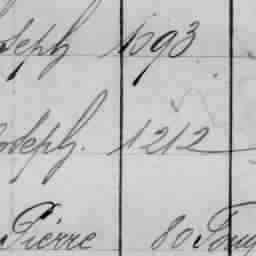 oseph 1693
oseph. 1212
Pierre 80